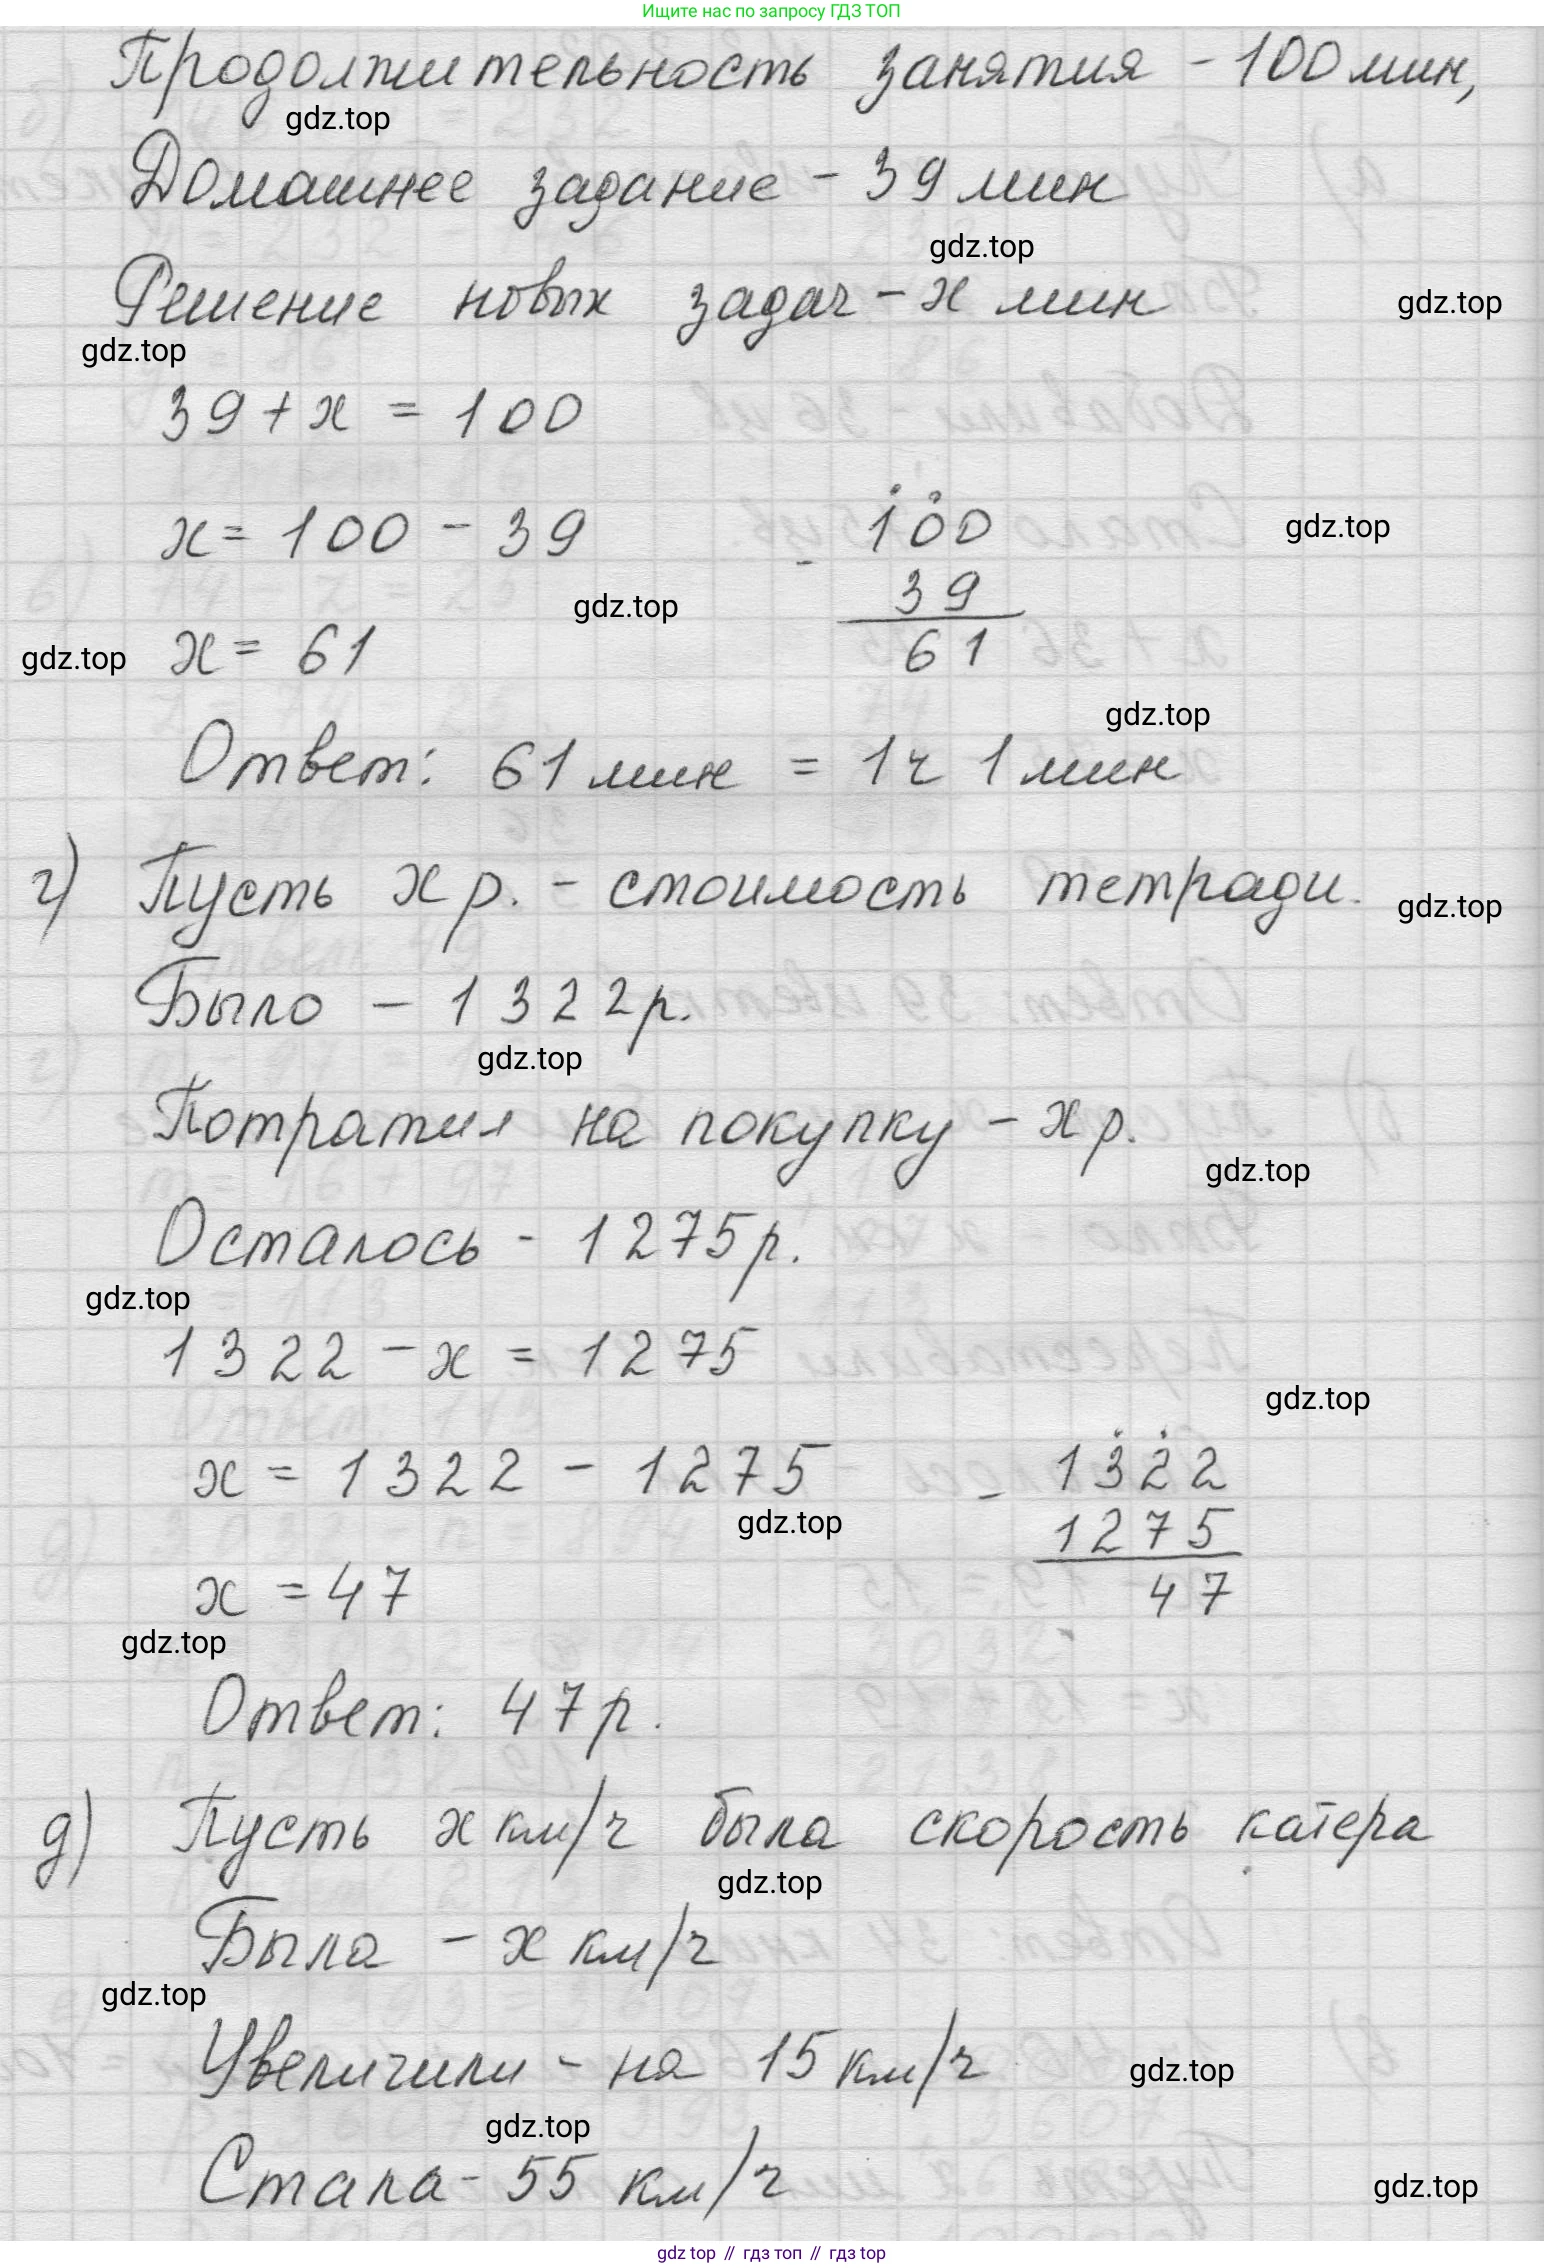 Ищите нас по запросу ГДЗ ТОП
Продолжительность занятия - 100 мин,
gdz.top
Домашнее задание - 39 мин
gdz.top
Решение новых задач - x мин
gdz.top
gdz.top
39 + x = 100
x = 100 - 39
- 100
gdz.top
39
gdz.top
61
gdz.top
x = 61
gdz.top
Ответ: 61 мин = 1ч 1 мин
г) Пусть x р. - стоимость тетради.
gdz.top
Было - 1322р.
gdz.top
Потратил на покупку - x р.
gdz.top
Осталось - 1275р.
gdz.top
1322 - x = 1275
gdz.top
x = 1322 - 1275
- 1322
gdz.top
1275
47
x = 47
gdz.top
Ответ: 47р.
д) Пусть x км/ч была скорость катера
gdz.top
Была - x км/ч
gdz.top
Увеличили - на 15 км/ч
gdz.top
gdz.top
Стала - 55 км/ч
gdz.top
gdz top // гдз топ // гдз top